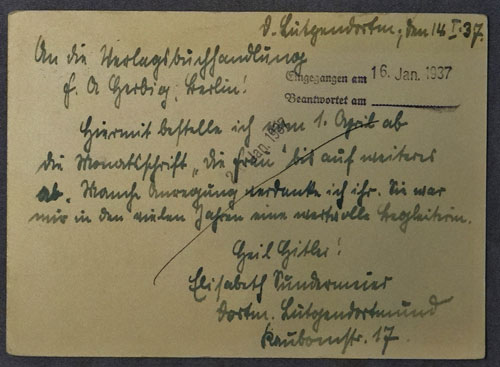 D. Lütgendortm., den 14. I. 37.
An die Verlagsbuchhandlung
F. A Herbig, Berlin!
Eingegangen am 16. Jan. 1937
Beantwortet am
Hiermit bestelle ich vom 1. April ab
die Monatsschrift „Die Frau" bis auf weiteres
ab. Manche Anregung verdanke ich ihr. Sie war
mir in den vielen Jahren eine wertvolle Begleiterin.
Heil Hitler!
Elisabeth Sundermeier
Dortm. Lütgendortmund
str. 17.